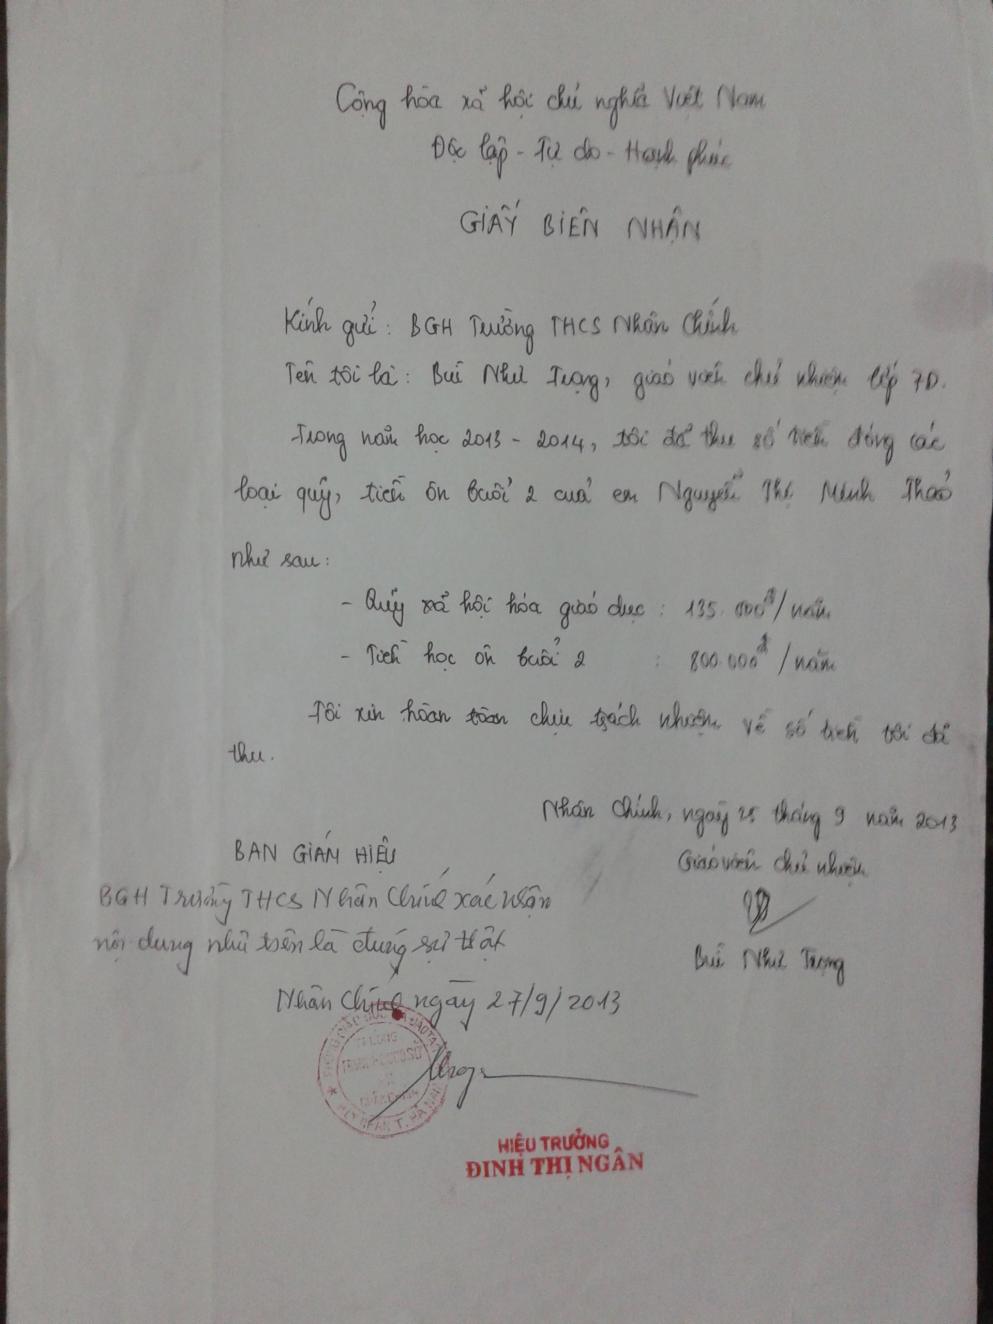 Cộng hòa xã hội chủ nghĩa Việt Nam
Độc lập - Tự do - Hạnh phúc
GIẤY BIÊN NHẬN
Kính gửi: BGH Trường THCS Nhân Chính
Tên tôi là: Bùi Như Trọng, giáo viên chủ nhiệm lớp 7D.
Trong năm học 2013 - 2014, tôi đã thu số tiền đóng các
loại quỹ, tiền ôn buổi 2 của em Nguyễn Thị Minh Thảo
như sau:
- Qũy xã hội hóa giáo dục : 135.000đ/năm
- Tiền học ôn buổi 2 : 800.000đ/năm
Tôi xin hoàn toàn chịu trách nhiệm về số tiền tôi đã
thu.
Nhân Chính, ngày 25 tháng 9 năm 2013
BAN GIÁM HIỆU
Giáo viên chủ nhiệm
BGH Trường THCS Nhân Chính xác nhận
nội dung như trên là đúng sự thật
Bùi Như Trọng
Nhân Chính ngày 27/9/2013
TRƯỜNG
TRUNG HỌC CƠ SỞ
NHÂN CHÍNH
H. LÝ NHÂN T. HÀ NAM
HIỆU TRƯỞNG
ĐINH THỊ NGÂN